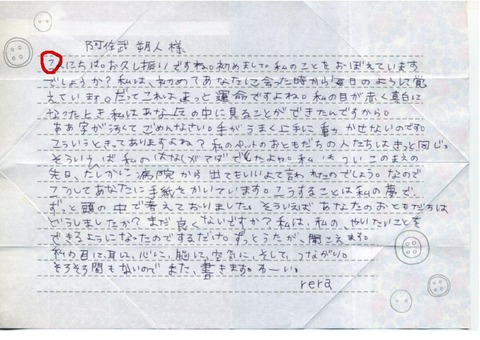 阿佐武 朔人 様
こんにちは。お久し振りですね。初めまして。私のことをおぼえています
でしょうか?私は、初めてあなたに会った時から毎日のように覚
えています。だってこれはきっと運命ですよね。私の目が赤く真白に
なったとき、私はあなたの中に見ることができたんですから。
ああ字が汚くてごめんなさい。手がうまく上手に動かせないのです。
こういうときってありますよね?私のペットのおともだちの人たちはきっと同じ。
そういうば私の はなし でしたよね。私 は ついこのまえの
先日、たしかに病院から出てもいいよって言われたのでしょう。なので
こうしてあなたに手紙をかいています。こうすることは私の夢で、
ずっと頭の中で考えておりました。そういえばあなたのおともだちは
どうしましたか?まだ良くないですか?私は、私の、やりたいことを
できるようになったのでするだけ。ずっとうたが、聞こえます。
私の目に、耳に、心に、脳に、空気に、そして、つながり。
そろそろ間もないので また、書きます。るーい。
rera